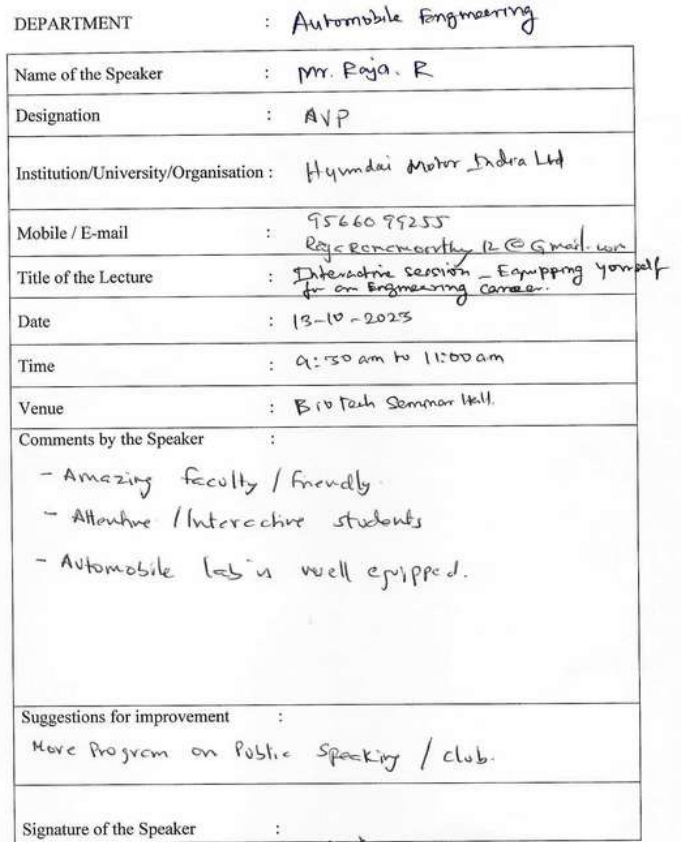 DEPARTMENT : Automobile Engineering
Name of the Speaker : Mr. Raja. R
Designation : AVP
Institution/University/Organisation : Hyundai Motor India Ltd
Mobile / E-mail : 95660 99255
12@Gmail.com
Title of the Lecture : Interactive session - Equipping yourself
for an Engineering career.
Date : 13-10-2023
Time : 9:30 am to 11:00 am
Venue : Bio Tech Seminar Hall.
Comments by the Speaker :
- Amazing faculty / friendly.
- Attentive / Interactive students
- Automobile lab is well equipped.
Suggestions for improvement :
More Program on Public Speaking / club.
Signature of the Speaker :